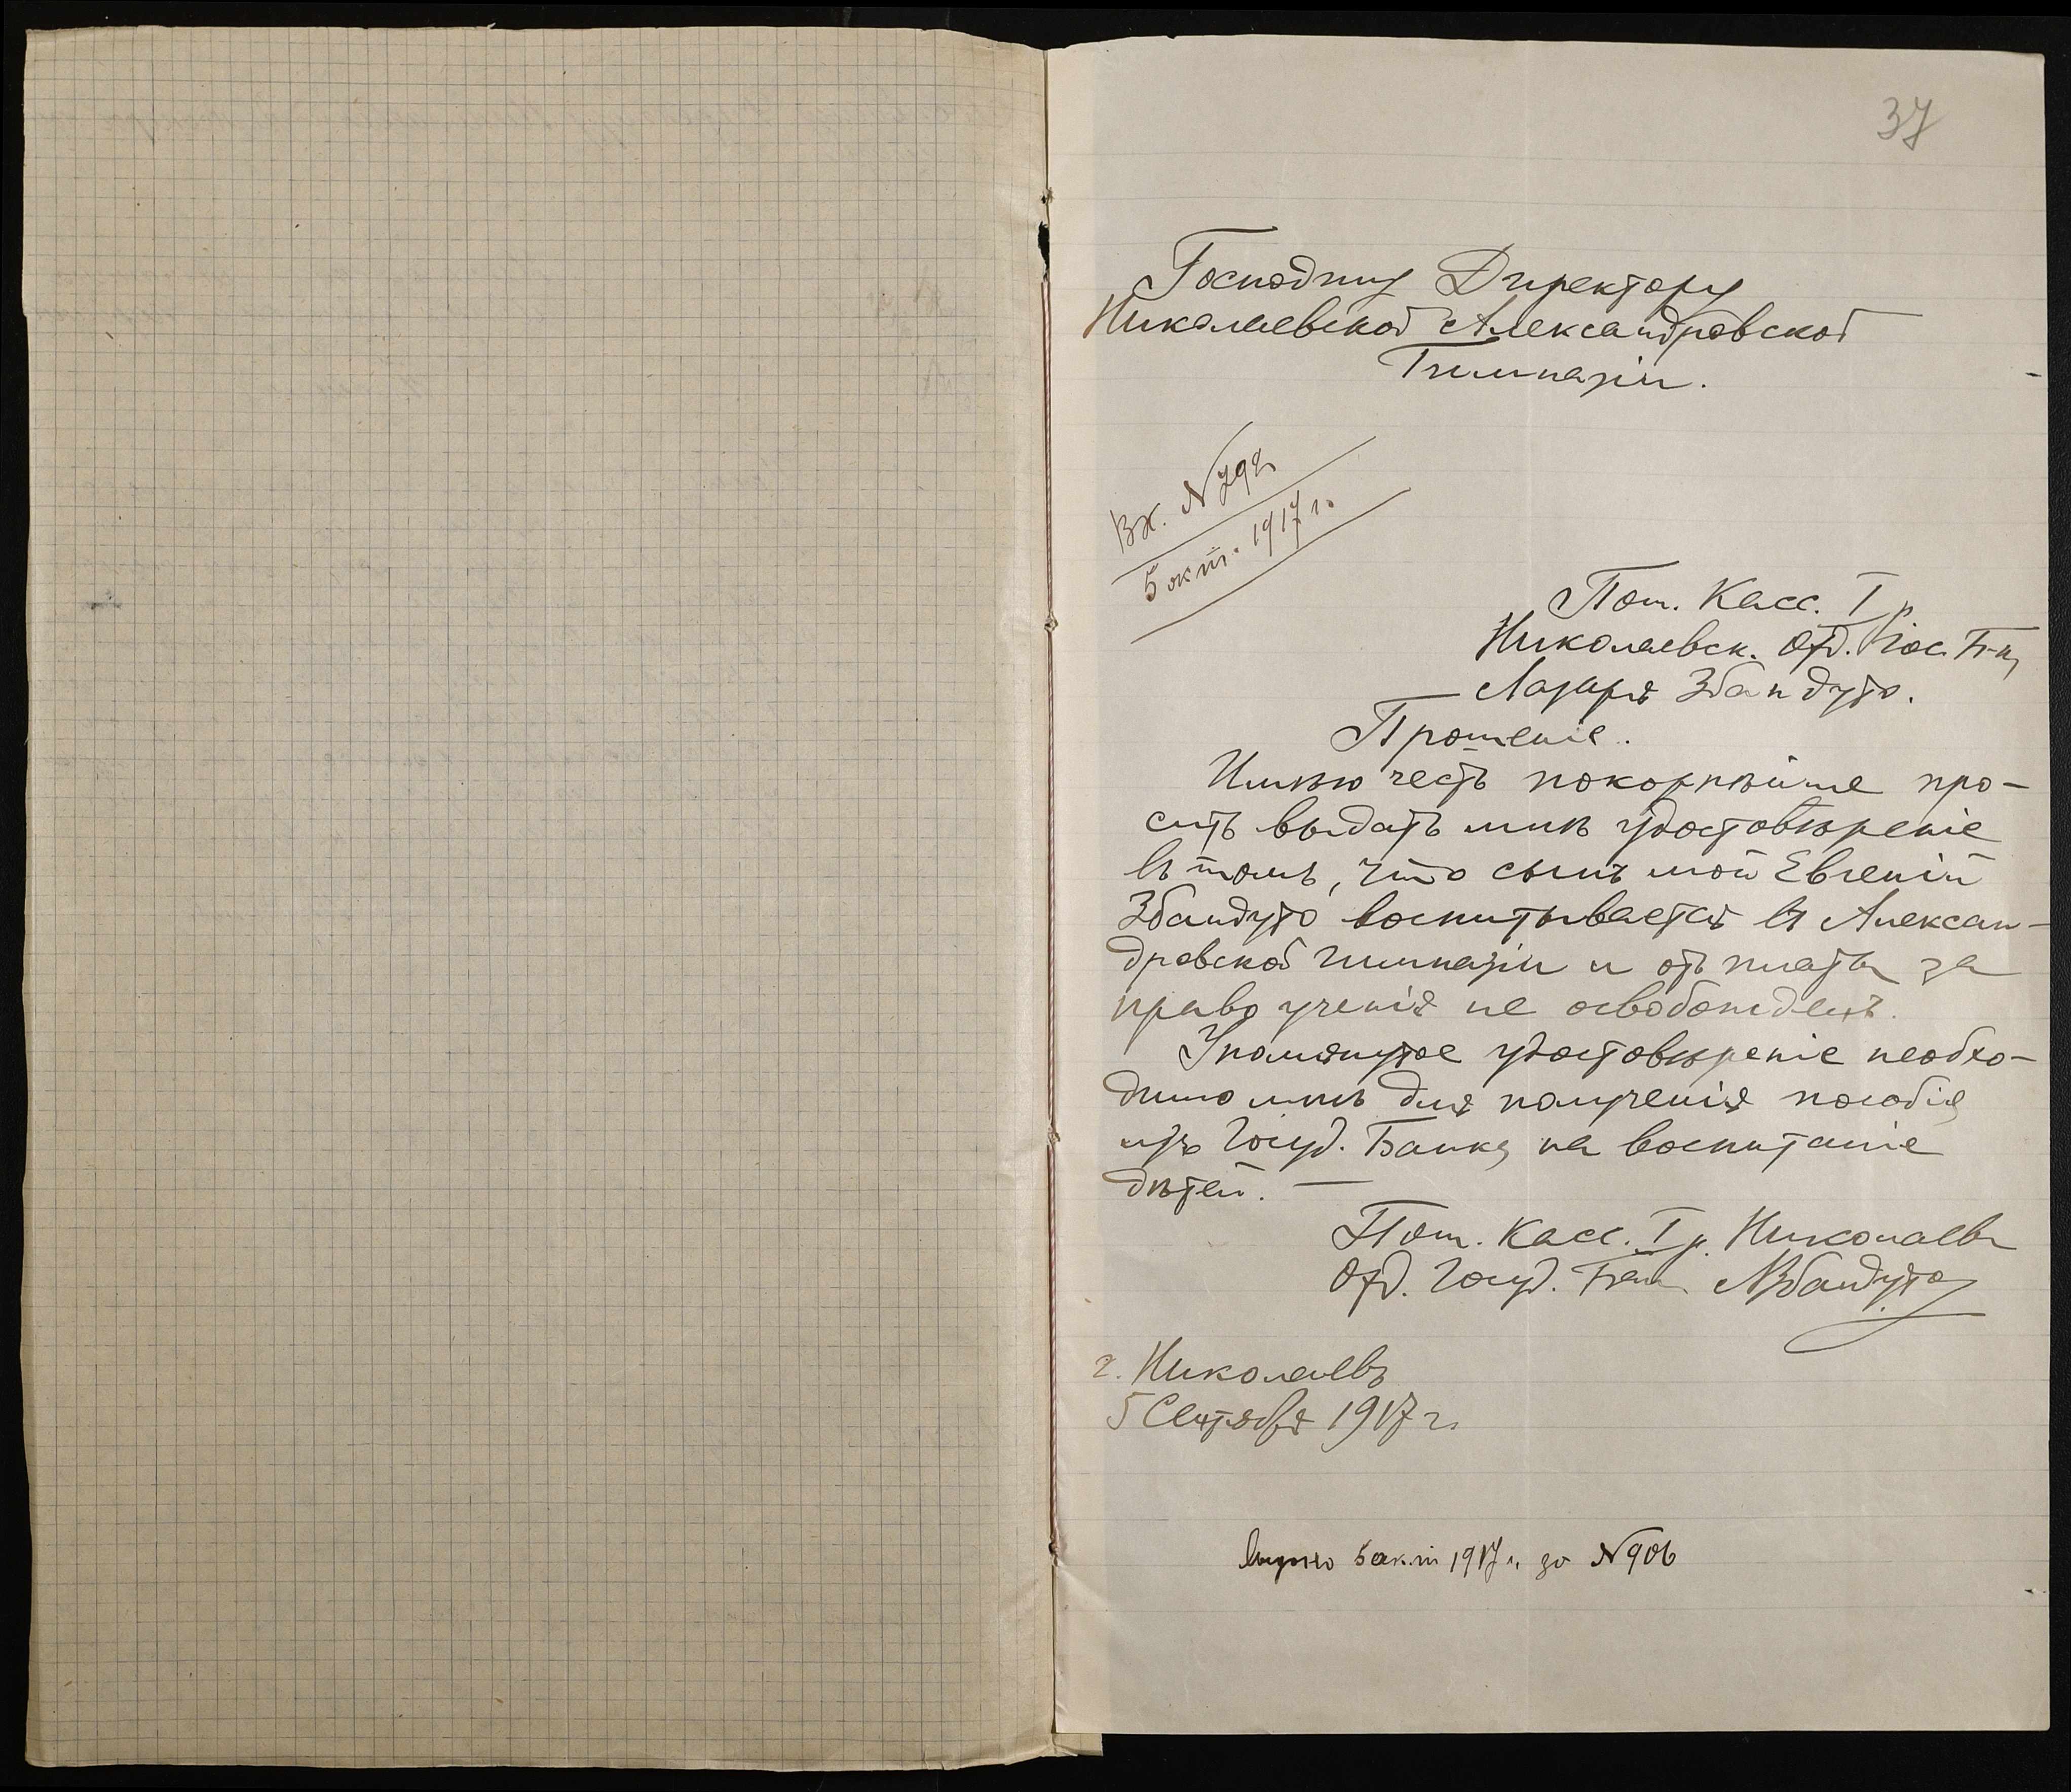 37
Господину Директору
Николаевской Александровской
Гимназіи.
Вх. № 792
5 окт. 1917 г.
Пом. Касс. I р
Николаевск. Отд. Гос. Б-ка
Лазаря Збандуто.
Прошеніе.
Имѣю честь покорнѣйше про-
сить выдать мнѣ удостовѣреніе
въ томъ, что сынъ мой Евгеній
Збандуто воспитывается въ Алексан-
дровской гимназіи и отъ платы за
право ученія не освобожденъ.
Упомянутое удостовѣреніе необхо-
димо мнѣ для полученія пособія
изъ Госуд. Банка на воспитаніе
дѣтей. —
Пом. Касс. I р. Николаев
Отд. Госуд. Банк ЛЗбандуто
г. Николаевъ
5 Сентября 1917 г.
Выдано 5 окт 1917 г. за № 906